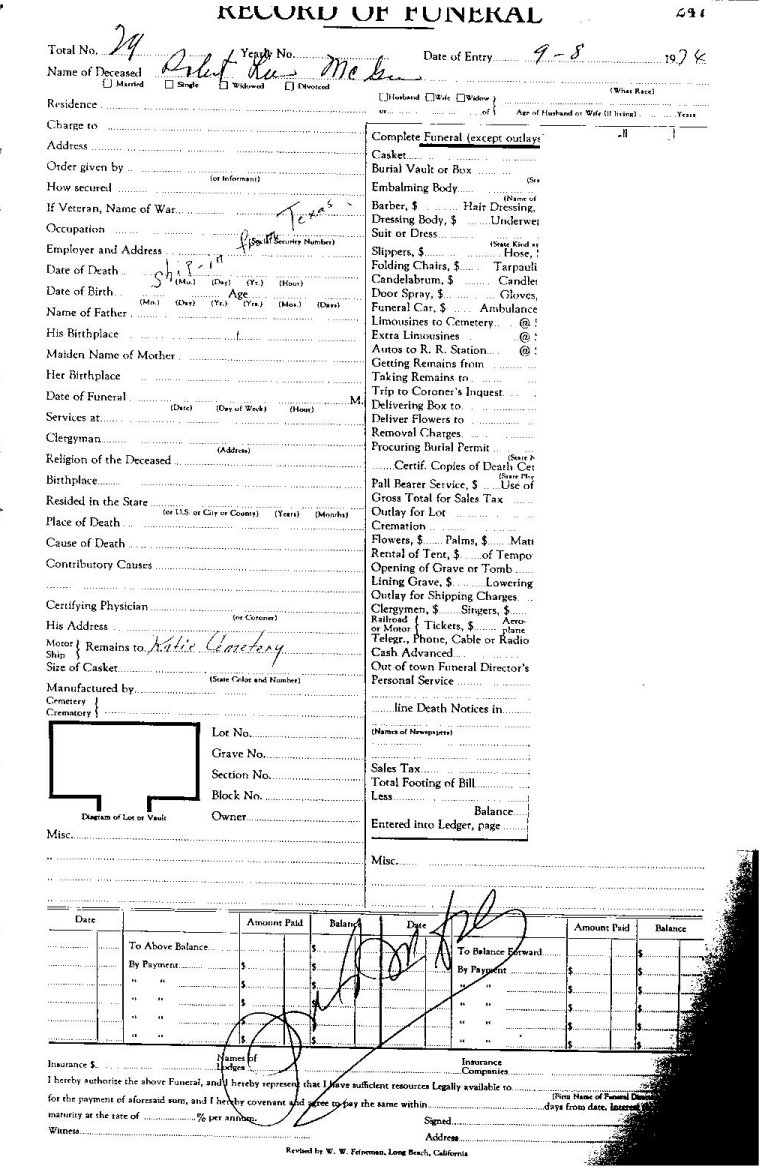 RECORD OF FUNERAL
Total No. 74 Yearly No. Date of Entry 9-8 1974
Name of Deceased Robert Lee
Married Single Widowed Divorced
(What Race)
Residence
Husband Wife Widow
or of Age of Husband or Wife (If living) Years
Charge to
Address
Order given by
(or Informant)
How secured
If Veteran, Name of War
Texas
Occupation
from
(Social Security Number)
Employer and Address
Ship-in
Date of Death
(Mo.) (Day) (Yr.) (Hour)
Date of Birth Age
(Mo.) (Day) (Yr.) (Yrs.) (Mos.) (Days)
Name of Father
His Birthplace
Maiden Name of Mother
Her Birthplace
Date of Funeral M.
(Date) (Day of Week) (Hour)
Services at
Clergyman
(Address)
Religion of the Deceased
Birthplace
Resided in the State
(or U.S. or City or County) (Years) (Months)
Place of Death
Cause of Death
Contributory Causes
Certifying Physician
(or Coroner)
His Address
Motor Ship Remains to Katie Cemetery
Size of Casket
(State Color and Number)
Manufactured by
Cemetery
Crematory
Lot No.
Grave No.
Section No.
Block No.
Diagram of Lot or Vault
Owner
Misc.
Complete Funeral (except outlays
Casket
Burial Vault or Box
Embalming Body
(Name of
Barber, $ Hair Dressing,
Dressing Body, $ Underwe
Suit or Dress
(State Kind
Slippers, $ Hose,
Folding Chairs, $ Tarpauli
Candelabrum, $ Candle
Door Spray, $ Gloves,
Funeral Car, $ Ambulance
Limousines to Cemetery @
Extra Limousines @
Autos to R. R. Station @
Getting Remains from
Taking Remains to
Trip to Coroner's Inquest
Delivering Box to
Deliver Flowers to
Removal Charges
Procuring Burial Permit
(State
Certif. Copies of Death Cer
(State Phy
Pall Bearer Service, $ Use of
Gross Total for Sales Tax
Outlay for Lot
Cremation
Flowers, $ Palms, $ Mat
Rental of Tent, $ of Tempo
Opening of Grave or Tomb
Lining Grave, $ Lowering
Outlay for Shipping Charges
Clergymen, $ Singers, $
Railroad or Motor Tickers, $ Aeroplane
Telegr., Phone, Cable or Radio
Cash Advanced
Out of town Funeral Director's
Personal Service
line Death Notices in
(Names of Newspapers)
Sales Tax
Total Footing of Bill
Less
Balance
Entered into Ledger, page
Misc.
Date Amount Paid Balance Date Amount Paid Balance
To Above Balance $ To Balance Forward $
By Payment $ $ By Payment $ $
" " $ $ " " $ $
" " $ $ " " $ $
" " $ $ " " $ $
" " $ $ " " $ $
Insurance $ Names of Lodges Insurance Companies
I hereby authorize the above Funeral, and I hereby represent that I have sufficient resources Legally available to
(Firm Name of Funeral
for the payment of aforesaid sum, and I hereby covenant and agree to pay the same within days from date. Interest
maturity at the rate of % per annum.
Signed
Witness
Address
Revised by W. W. Feineman, Long Beach, California